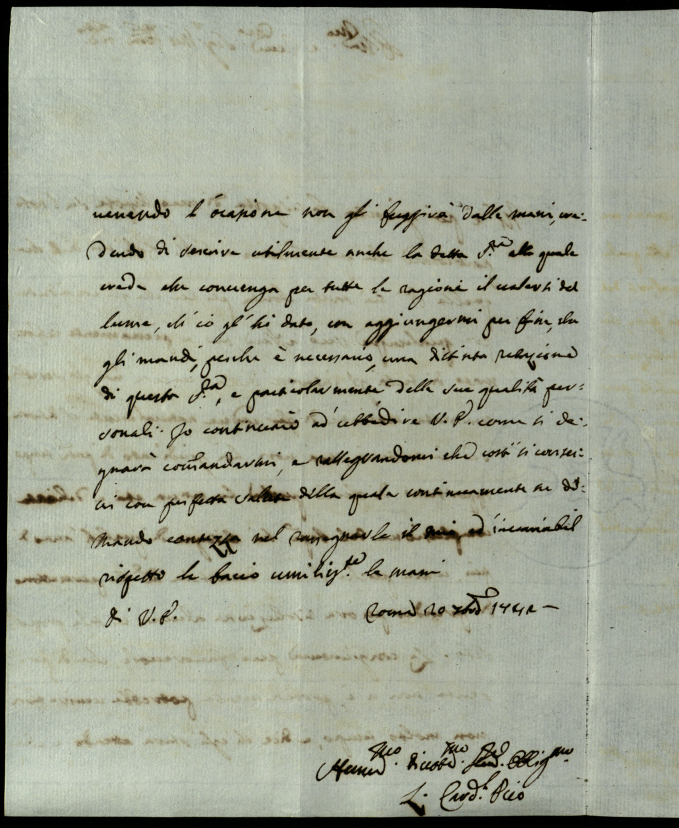 nenando l'ocasione non gli fuggirà dalle mani, cre-
dendo di servire utilmente anche la detta S.ra alla quale
crede che convenga per tutte le ragione il valersi del
lume, di ciò gl'hò dato, con aggiungermi per fine, che
gli mandi, perche è necessario, una distinta relazione
di questa S.ra, e particolarmente delle sue qualità per-
sonali. Io continuarò ad'ubbidire V.P. come si de-
gnarà comandarmi, e rallegrandomi che costì si conser-
vi con perfetta salute della quale continuamente ne di-
mando contezza nel rassegnarle il mio ed invariabil
rispetto le bacio umiliss.te le mani
di V.P. Roma 20
Aff.mo Obblig.mo
L. Card.l Pico